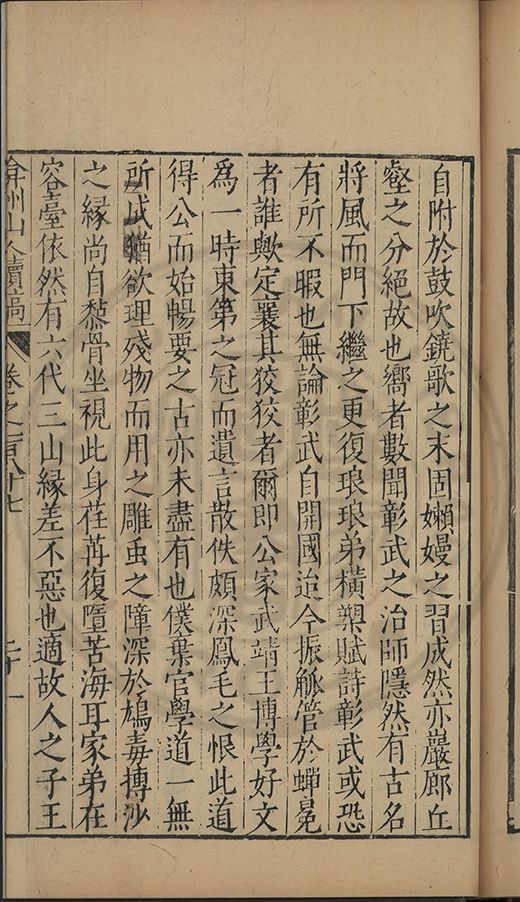 自附於鼓吹鐃歌之末固嬾嫚之習成然亦巖廊丘
壑之分絕故也嚮者數聞彰武之治師隱然有古名
將風而門下繼之更復琅琅弟橫槊賦詩彰武或恐
有所不暇也無論彰武自開國迨今振觚管於蟬冕
者誰歟定襄其狡狡者爾即公家武靖王博學好文
爲一時東第之冠而遺言散佚頗深鳳毛之恨此道
得公而始暢要之古亦未盡有也僕棄官學道一無
所成猶欲理殘物而用之雕虫之障深於鳩毒摶沙
之緣尚自黏骨坐視此身荏苒復墮苦海耳家弟在
容臺依然有六代三山緣差不惡也適故人之子王
弇州山人續稿 卷之一百八十七 二十一